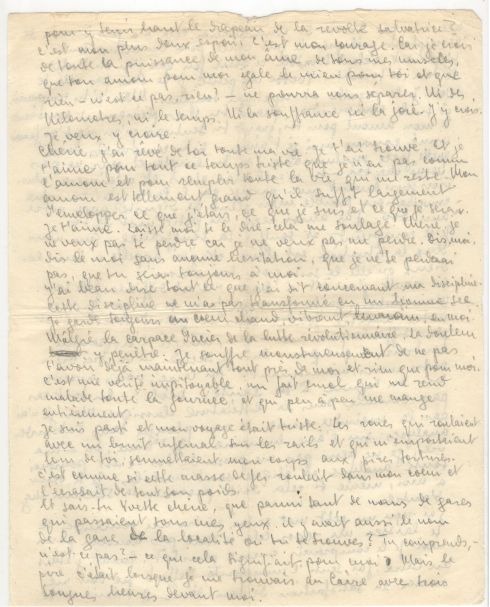 pour y tenir haut le drapeau de la revolte salvatrice?
c'est mon plus doux espoir, c'est mon courage. Car je crois
de toute la puissance de mon ame, de tous mes muscles,
que ton amour pour moi egale le mien pour toi et que
rien - n'est ce pas, rien? - ne pourra nous separer. Ni les
Kilometres, ni le temps. Ni la souffrance ni la joie. J'y crois.
Je veux y croire.
Cherie, j'ai rêvé de toi toute ma vie. Je t'ai trouvé. Et je
t'aime pour tout ce temps triste que je n'ai pas connu
l'amour et pour remplir toute la vie qui me reste. Mon
amour est tellement grand qu'il suffit largement
developper ce que j'étais, ce que je suis et ce que je serai.
Je t'aime. Laisse moi te le dire - cela me soulage. Cherie, je
ne veux pas te perdre car je ne veux pas me perdre. Dis moi,
dis le moi sans aucune hesitation, que je ne te perdrai
pas, que tu seras toujours à moi.
J'ai beau dire tout ce que j'ai dit concernant ma discipline.
Cette discipline ne m'a pas transformé en un homme sec.
Je garde toujours un coeur chaud, vibrant en moi.
Malgré la carpace d'acier de la lutte révolutionnaire. La douleur
y penètre. Je souffre monstrueusement de ne pas
t'avoir déjà maintenant tout près de moi et rien que pour moi.
c'est une verité impitoyable, un fait cruel qui me rend
malade toute la journée et qui peu à peu me mange
entièrement.
Je suis parti et mon voyage était triste. Les roues qui roulaient
avec un bruit infernal sur les rails et qui m'emportaient
loin de toi, soumettaient mon corps aux pires tortures.
c'est comme si cette masse de fer roulait dans mon coeur et
l'ecrasait de tout son poids.
Et sais-tu Yvette cherie, que parmi tant de noms de gares
qui passaient sous mes yeux. il y avait aussi le nom
de la gare de la localité où tu te trouves? Tu comprends, -
n'est-ce pas? - ce que cela signifiait pour moi? Mais le
pire c'était lorsque je me trouvais au Caire avec trois
longues heures devant moi.